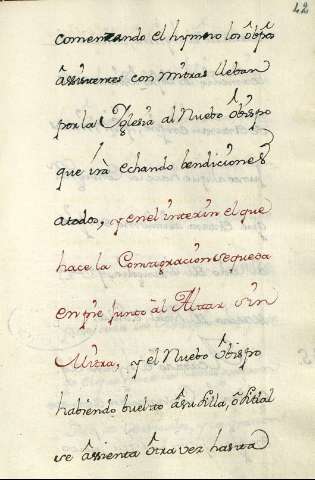 42
comenzando el hymno los ôbpôs
âssistentes con mîtras lleban
por la Iglesîa al Nuebo ôbîspo
que irà echando bendiciones
atodos, y enel interin el que
hace la Consagracion se queda
en pîe junto âl Altar sin
Mîtra, y el Nuebo ôbispo
habiendo buelto âsu silla, ô sitial
se âssienta ôtra vez hasta